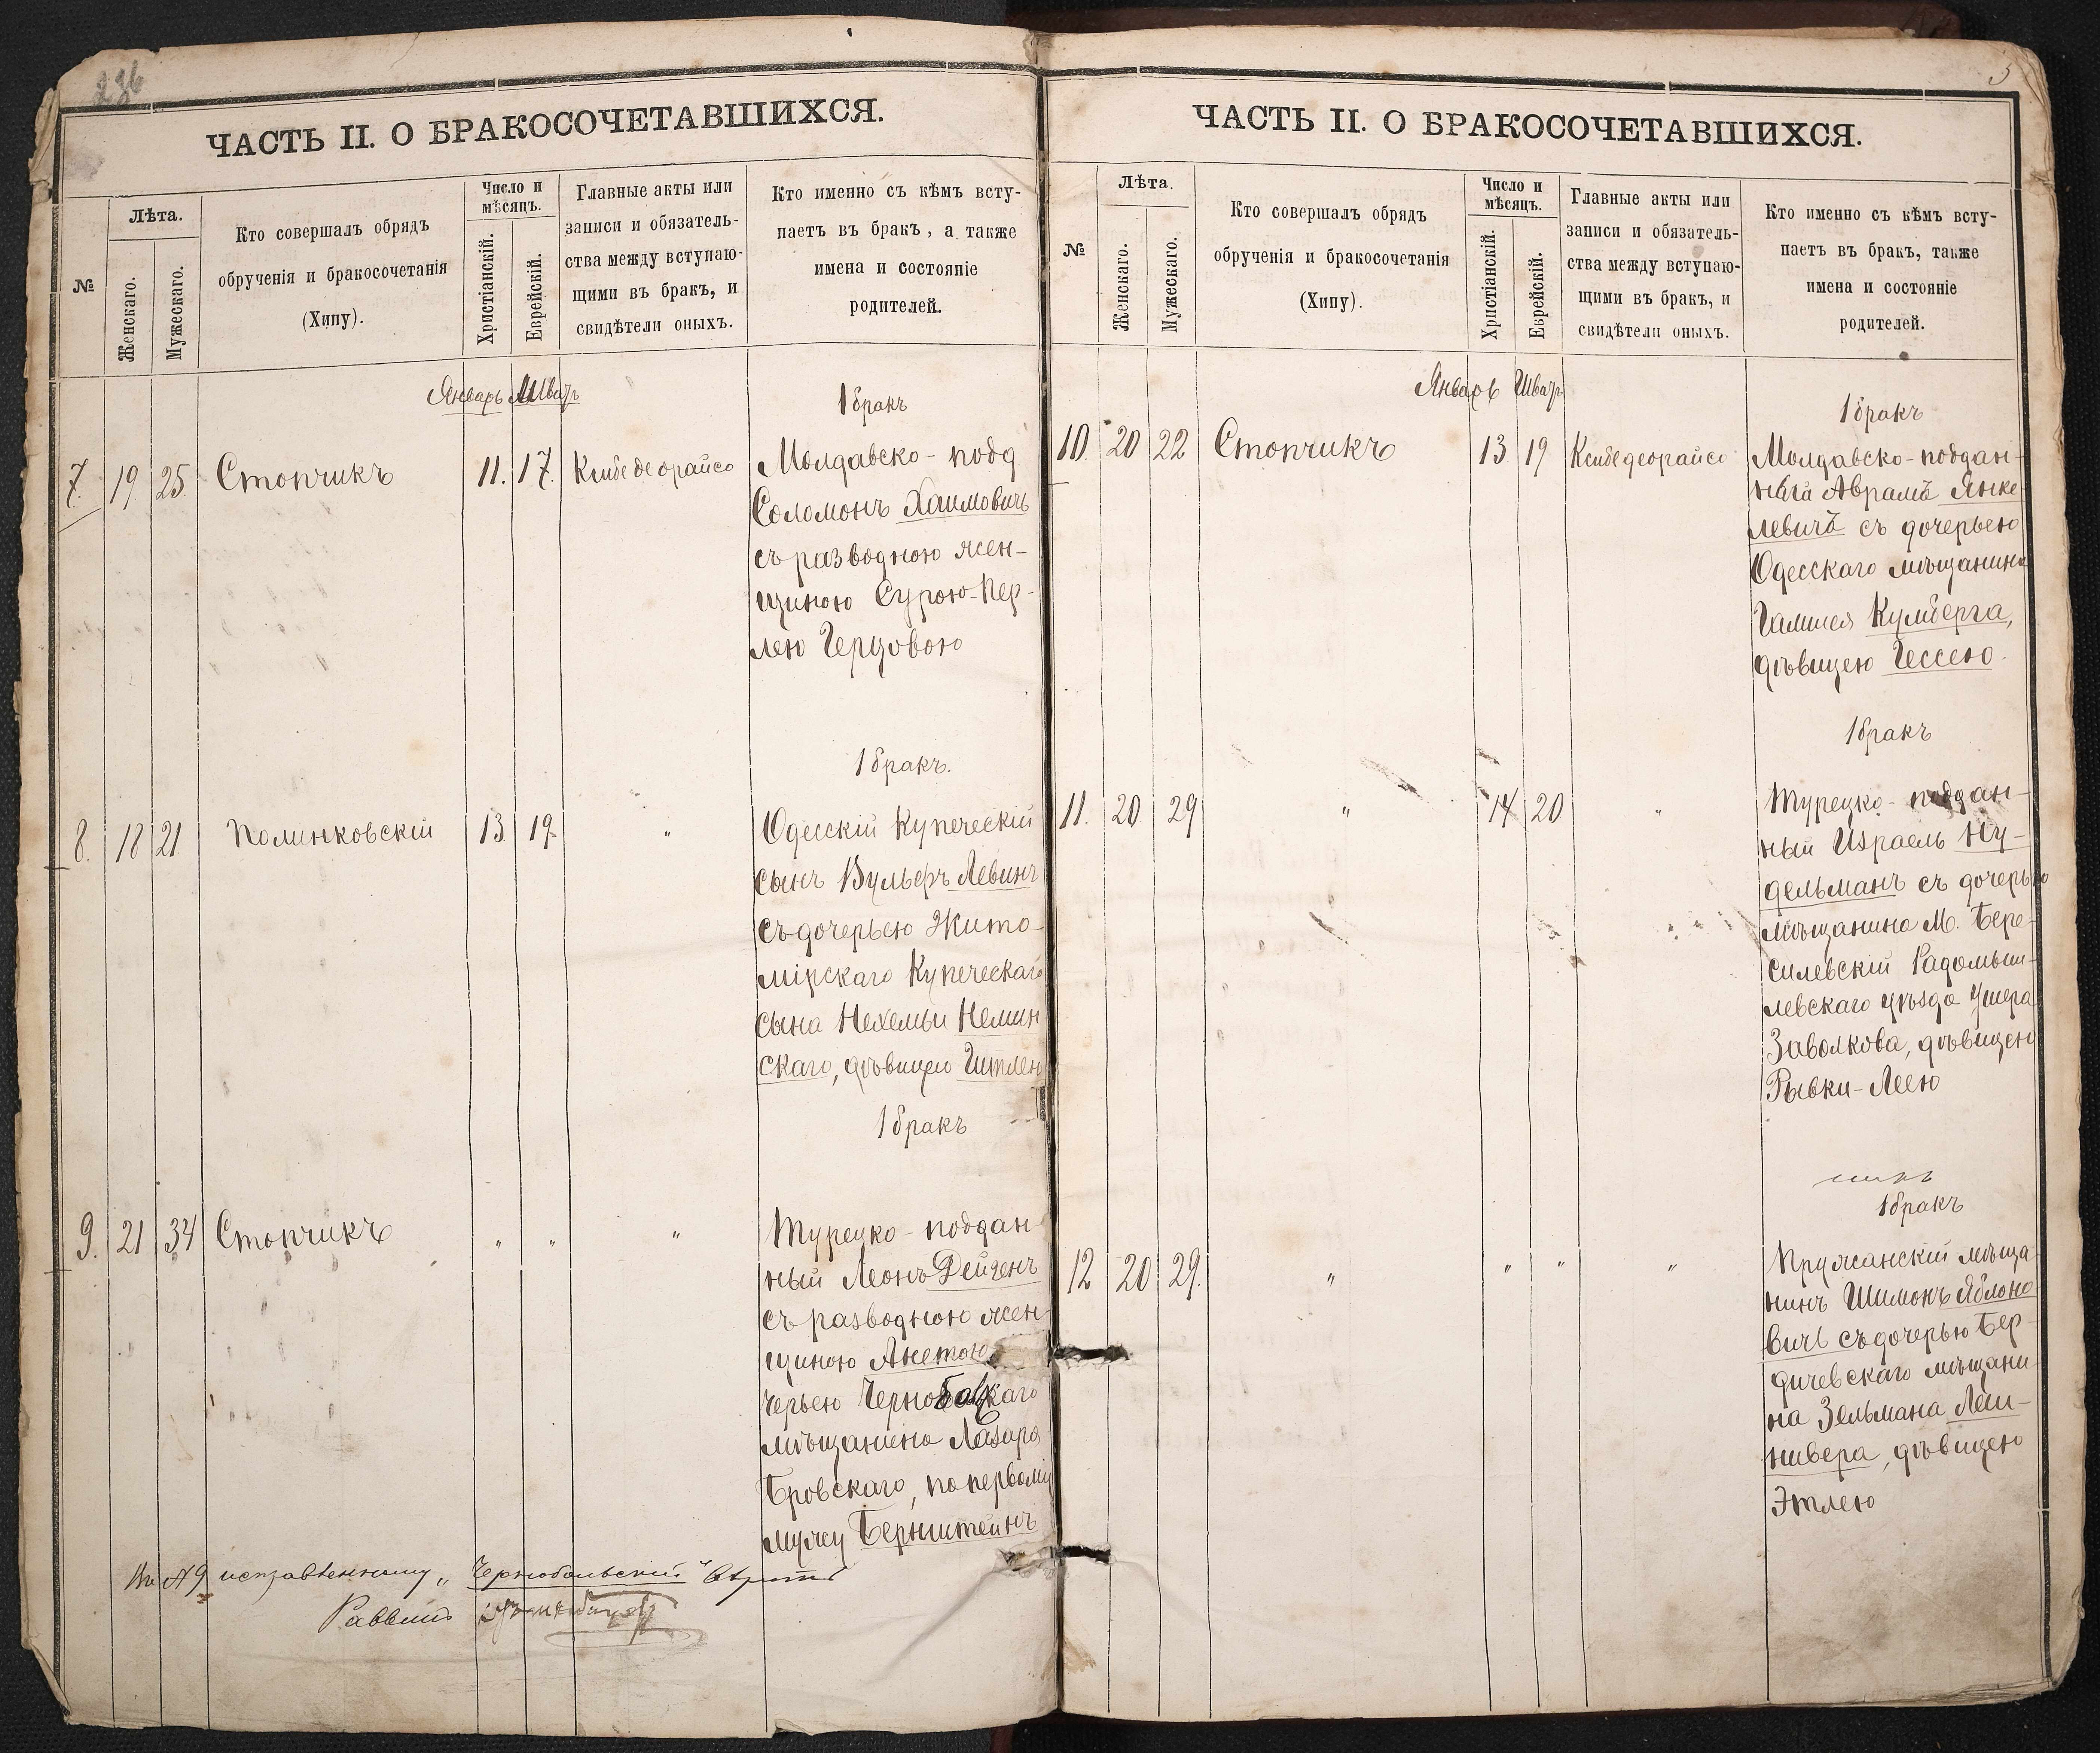 236
ЧАСТЬ II. О БРАКОСОЧЕТАВШИХСЯ.
№
Лѣта.
Женскаго.
Мужескаго.
Кто совершалъ обрядъ
обрученія и бракосочетанія
(Хипу).
Число и
мѣсяцъ.
Христіанскій.
Еврейскій.
Главные акты или
записи и обязатель-
ства между вступаю-
щими въ бракъ, и
свидѣтели оныхъ.
Кто именно съ кѣмъ всту-
паетъ въ бракъ, а также
имена и состояніе
родителей.
Январь Шватъ
1 бракъ
7. 19 25 Стопчикъ 11. 17. Ксибе деорайсо Молдавско-подд.
Соломонъ Хаимовичъ
съ разводною жен-
щиною Сурою-Пер-
лею Герцовою
1 бракъ.
8. 18 21 Полинковскій 13 19. " Одесскій Купеческій
сынъ Вульфъ Левинъ
съ дочерью Жито-
мірскаго Купеческаго
сына Нехемьи Немин
скаго, дѣвицею Гитлею
1 бракъ
9. 21 34 Стопчикъ " " " Турецко-поддан
ный Леонъ Дейченъ
съ разводною жен-
щиною Анетою
черью Чернобольскаго
мѣщанина Лазаря
Бровскаго, по первому
мужу Бернштейнъ
По № 9 исправленному „Чернобольскій" вѣрить
Раввинъ
5
ЧАСТЬ II. О БРАКОСОЧЕТАВШИХСЯ.
№
Лѣта.
Женскаго.
Мужескаго.
Кто совершалъ обрядъ
обрученія и бракосочетанія
(Хипу).
Число и
мѣсяцъ.
Христіанскій.
Еврейскій.
Главные акты или
записи и обязатель-
ства между вступаю-
щими въ бракъ, и
свидѣтели оныхъ.
Кто именно съ кѣмъ всту-
паетъ въ бракъ, также
имена и состояніе
родителей.
Январь Шватъ
1 бракъ
10. 20 22 Стопчикъ 13 19 Ксибе деорайсо Молдавско-поддан-
наго Аврама Янке
левича съ дочерью
Одесскаго мѣщанина
Гамшея Кумберга,
дѣвицею Гессею.
1 бракъ
11. 20 29 " 14 20 " Турецко-поддан-
ный Израель Ну-
дельманъ съ дочерью
мѣщанина М. Бере-
силевскій Радомыш-
левскаго уѣзда Ушера
Заволкова, дѣвицею
Рывки-Леею
1 бракъ
12 20 29. " " " " Пружанскій мѣща
нинъ Шимонъ Яблоно
вичъ съ дочерью Бер-
дичевскаго мѣщани
на Зельмана Лей-
нивера, дѣвицею
Этлею